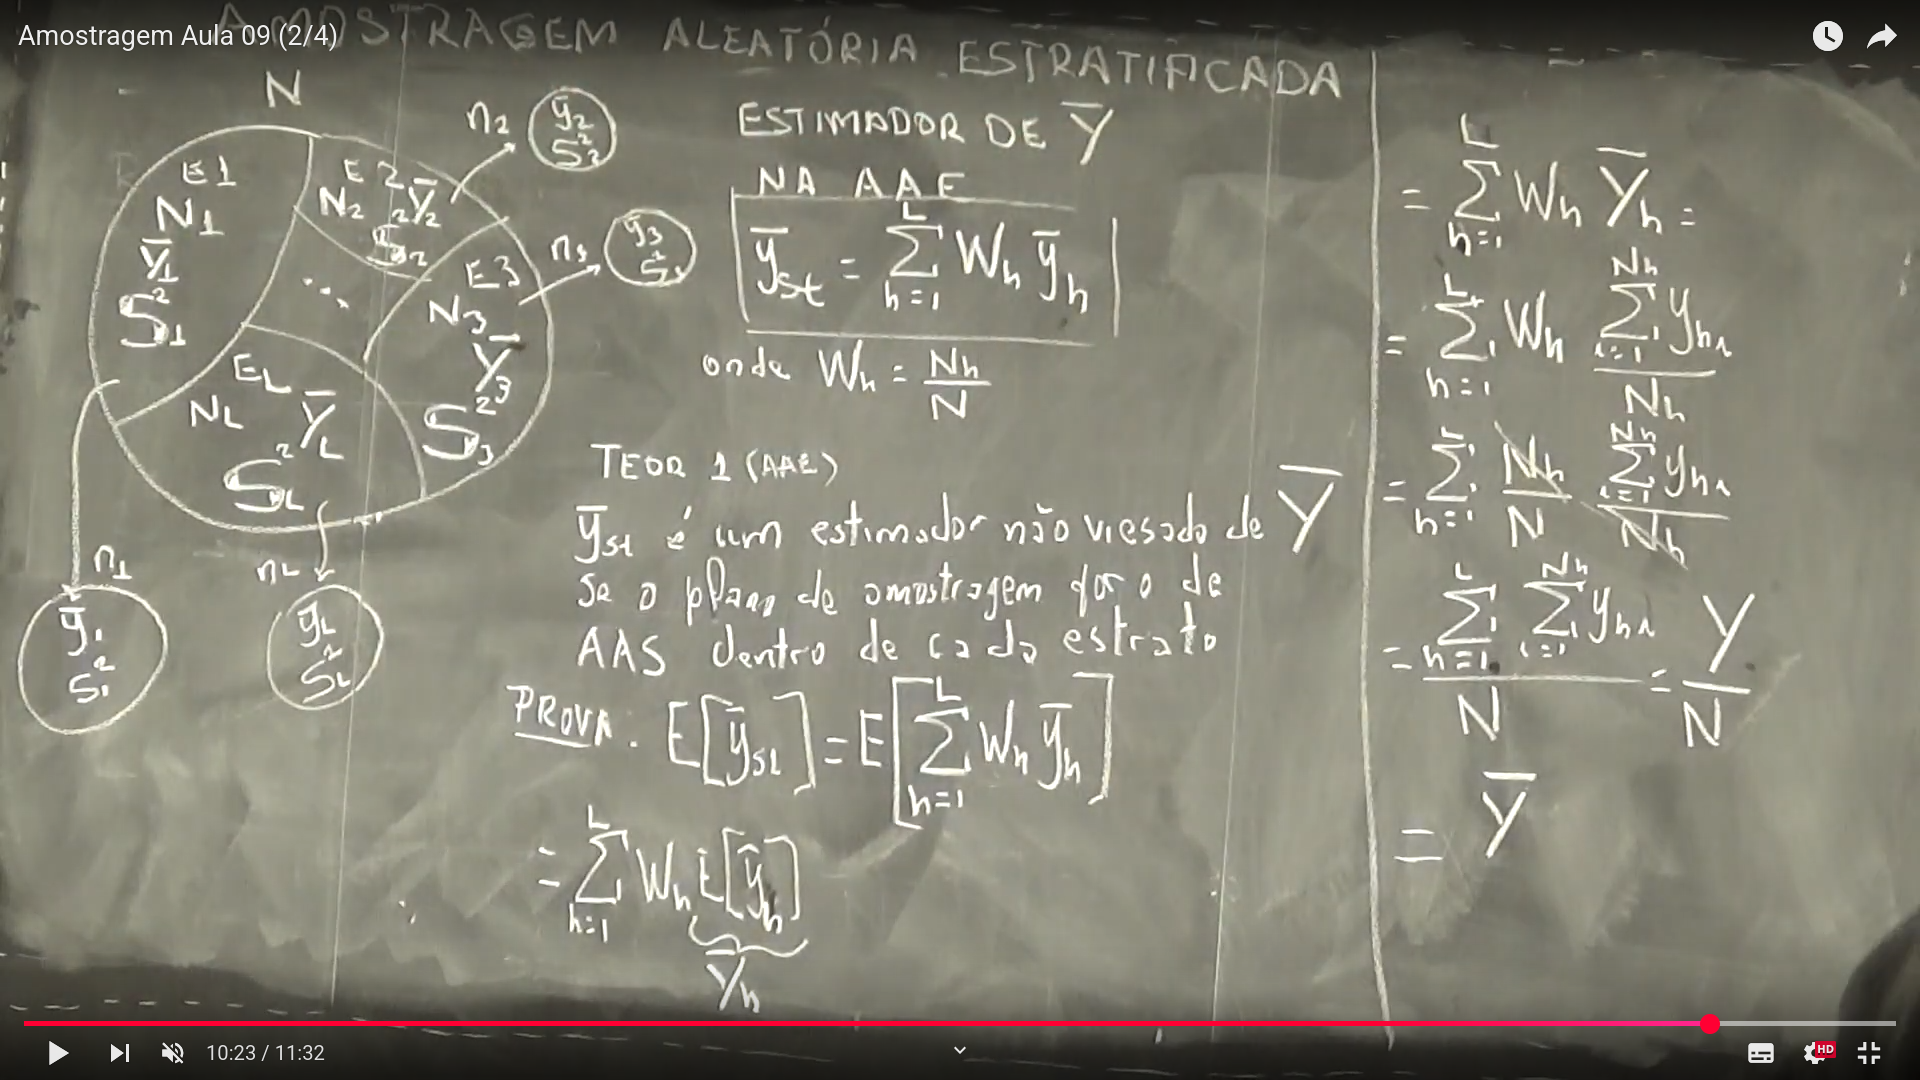 Amostragem Aula 09 (2/4)
AMOSTRAGEM ALEATÓRIA ESTRATIFICADA
N
E1
N₁
Y̅₁
S²₁
E2
N₂ Y̅₂
S²₂
...
E3
N₃
Y̅₃
S²₃
EL
NL Y̅L
S²L
n₂
y̅₂
S²₂
n₃
y̅₃
S²₃
n₁
y̅₁
S²₁
nL
y̅L
S²L
ESTIMADOR DE Y̅
NA AAE
y̅st = ∑ₕ₌₁ᴸ Wₕ y̅ₕ
onde Wₕ = Nₕ/N
TEOR 1 (AAE)
y̅st é um estimador não viesado de Y̅
se o plano de amostragem for o de
AAS dentro de cada estrato
PROVA: E[y̅st] = E[∑ₕ₌₁ᴸ Wₕ y̅ₕ]
= ∑ₕ₌₁ᴸ Wₕ E[y̅ₕ]
Y̅ₕ
= ∑ₕ₌₁ᴸ Wₕ Y̅ₕ =
= ∑ₕ₌₁ᴸ Wₕ ∑ᵢ₌₁ᴺʰ yₕᵢ / Nₕ
= ∑ₕ₌₁ᴸ Nₕ/N ∑ᵢ₌₁ᴺʰ yₕᵢ / Nₕ
= ∑ₕ₌₁ᴸ ∑ᵢ₌₁ᴺʰ yₕᵢ / N = Y/N
= Y̅
10:23 / 11:32
HD